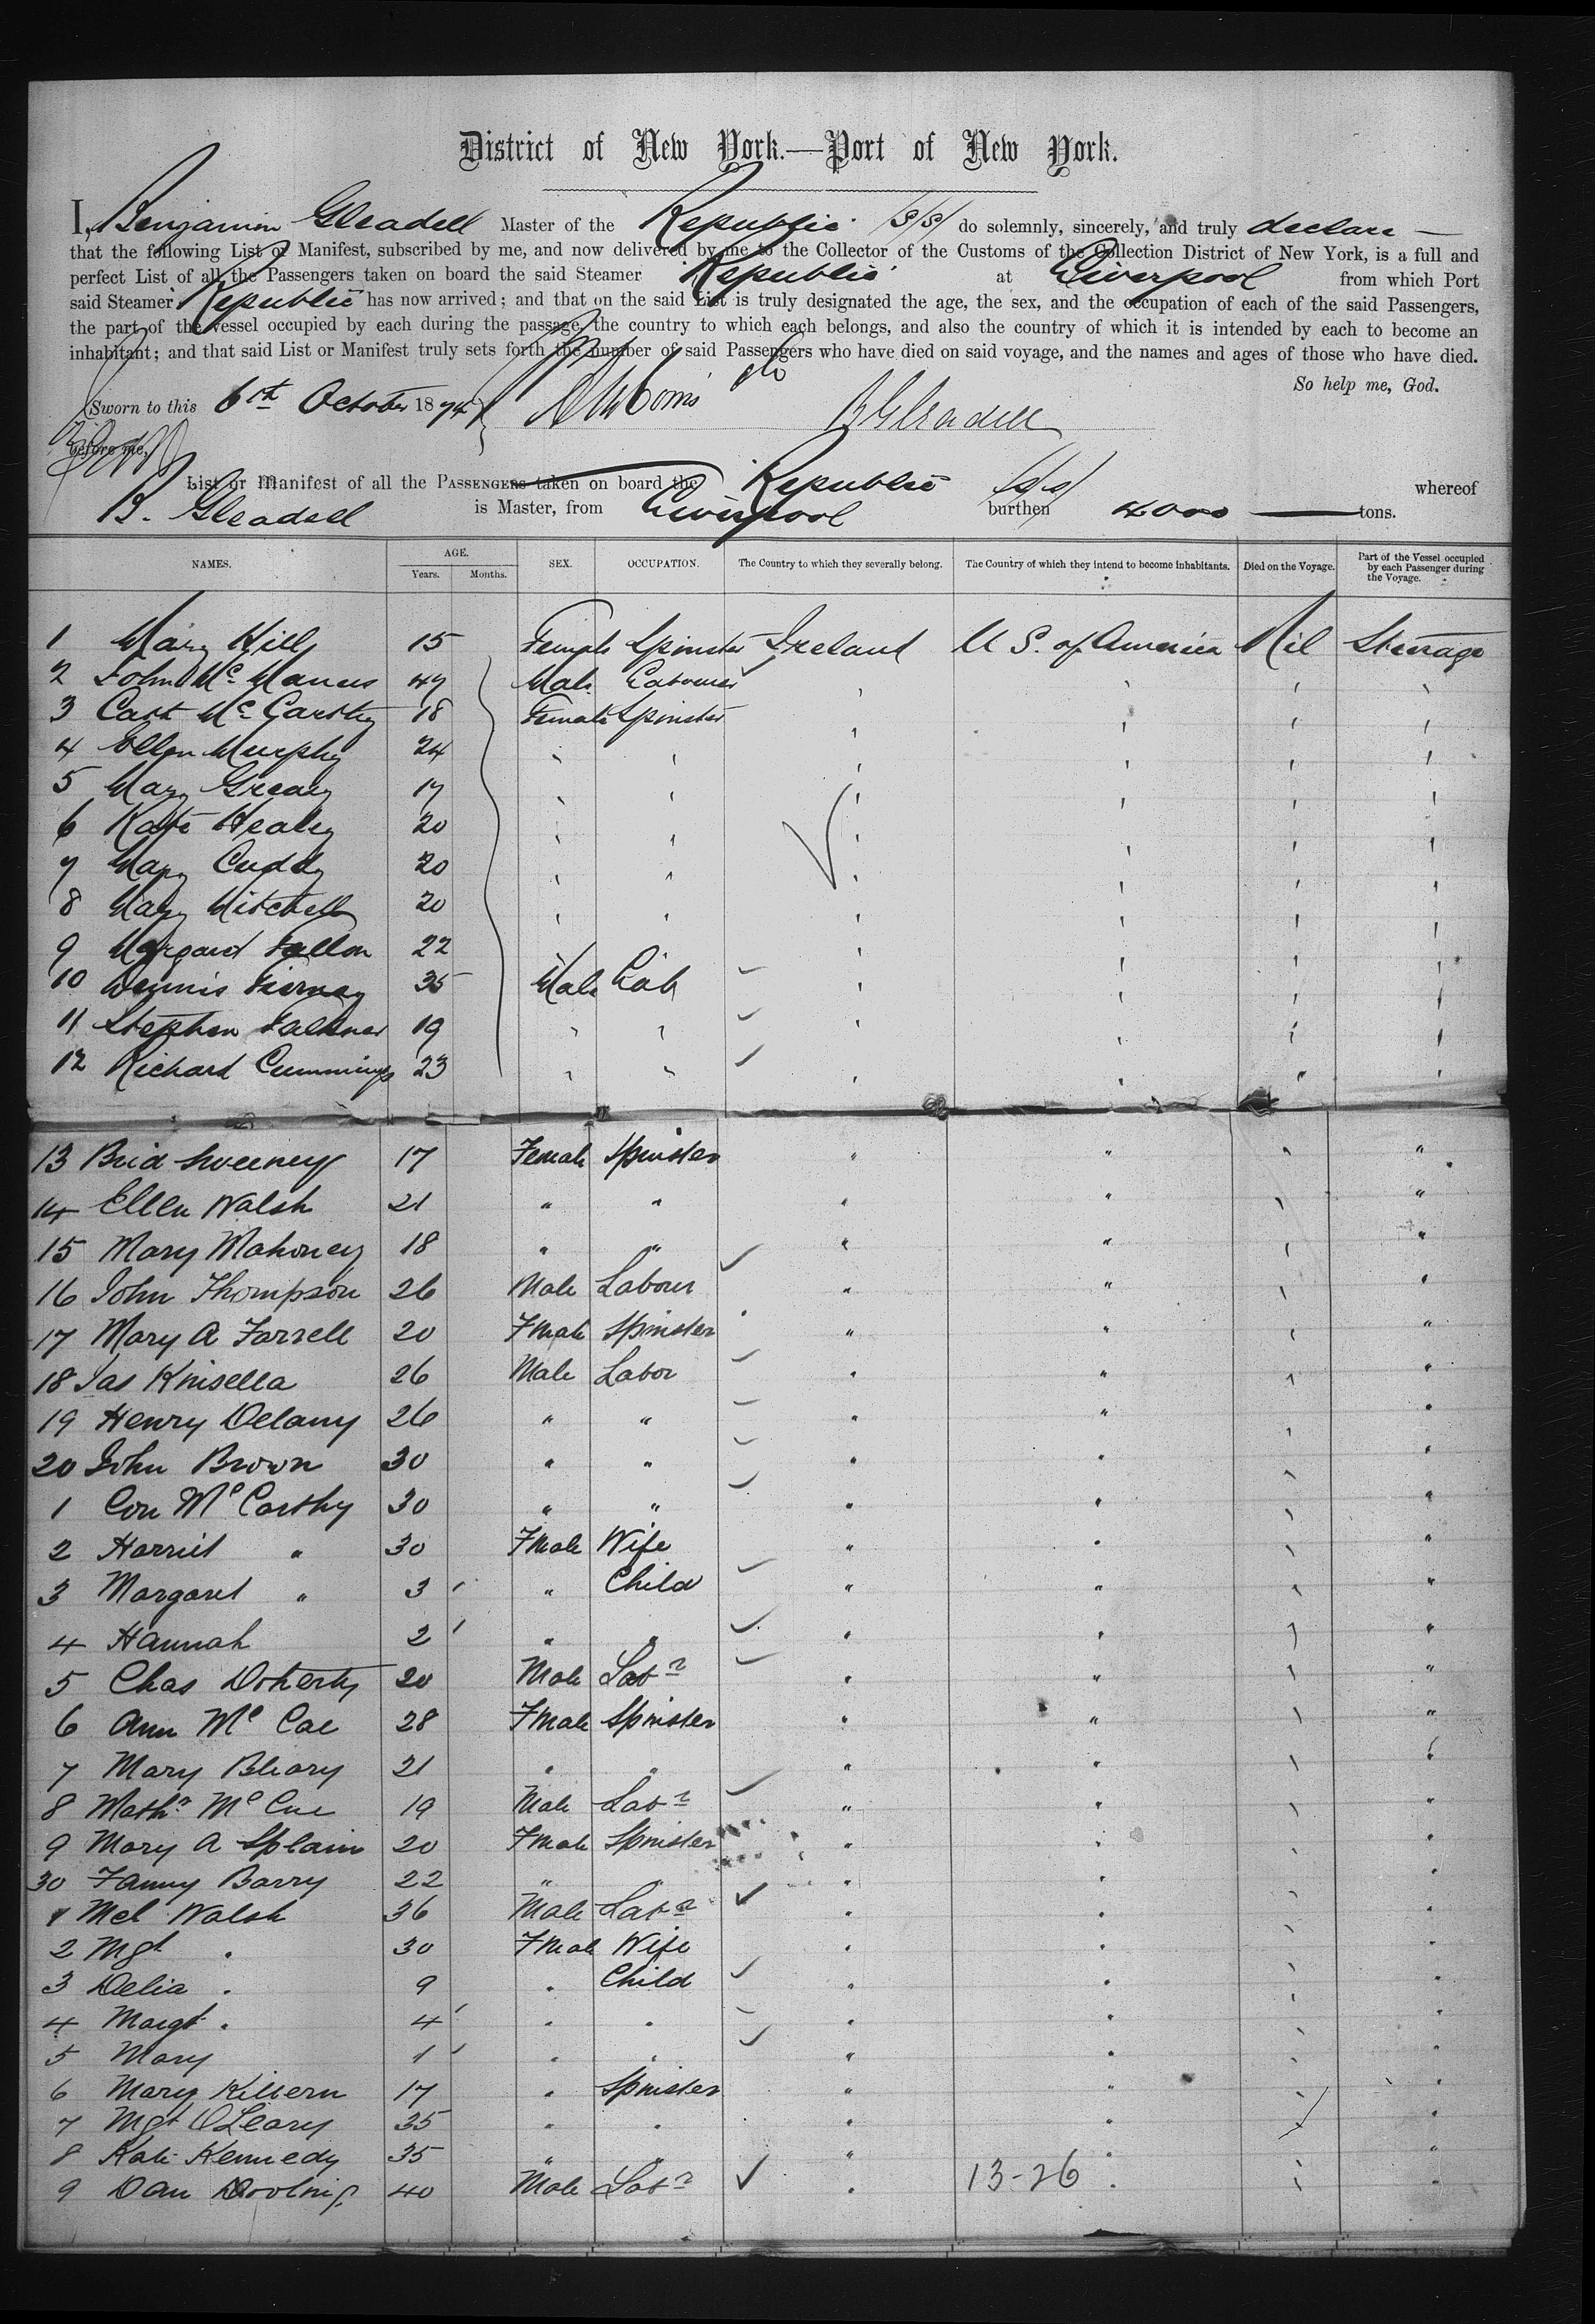 District of New York.—Port of New York.
I, Benjamin Gleadell Master of the Republic /S/S/ do solemnly, sincerely, and truly declare —
that the following List or Manifest, subscribed by me, and now delivered by me to the Collector of the Customs of the Collection District of New York, is a full and
perfect List of all the Passengers taken on board the said Steamer Republic at Liverpool from which Port
said Steamer Republic has now arrived; and that on the said List is truly designated the age, the sex, and the occupation of each of the said Passengers,
the part of the vessel occupied by each during the passage, the country to which each belongs, and also the country of which it is intended by each to become an
inhabitant; and that said List or Manifest truly sets forth the number of said Passengers who have died on said voyage, and the names and ages of those who have died.
So help me, God.
Sworn to this 6th October 1874
B Gleadell
before me,
List or Manifest of all the PASSENGERS taken on board the Republic /S.S/ whereof
B. Gleadell is Master, from Liverpool burthen 4000 — tons.
NAMES. AGE. SEX. OCCUPATION. The Country to which they severally belong. The Country of which they intend to become inhabitants. Died on the Voyage. Part of the Vessel occupied by each Passenger during the Voyage.
Years. Months.
1 Mary Hill 15 Female Spinster Ireland U S. of America Nil Steerage
2 John Mc Manus 47 Male Labourer
3 Cath Mc Carthy 18 Female Spinster
4 Ellen Murphy 24
5 Mary Greany 17
6 Kate Healey 20
7 Mary Cuddy 20
8 Mary Mitchell 20
9 Margaret Fallon 22
10 Dennis Tierney 35 Male Lab
11 Stephen Falkner 19
12 Richard Cummings 23
13 Brid Sweeney 17 Female Spinster " " "
14 Ellen Walsh 21 " " " " "
15 Mary Mahoney 18 " " " " "
16 John Thompson 26 Male Labour " " "
17 Mary A Farrell 20 Fmale Spinster " " "
18 Jas Kinsella 26 Male Labor " " "
19 Henry Delany 26 " " " " "
20 John Brown 30 " " " " "
1 Con Mc Carthy 30 " " " " "
2 Harriet " 30 Fmale Wife " " "
3 Margaret " 3 " Child " " "
4 Hannah 2 " " " " "
5 Chas Doherty 20 Male Labr " " "
6 Ann Mc Cae 28 Fmale Spinster " " "
7 Mary Bleary 21 " " " " "
8 Mathw Mc Cue 19 Male Labr " " "
9 Mary A Splain 20 Fmale Spinster " " "
30 Fanny Barry 22 " " " " "
1 Mcl Walsh 36 Male Labr " " "
2 Mgt " 30 Fmale Wife " " "
3 Delia " 9 " Child " " "
4 Margt " 4 " " " " "
5 Mary 1 " " " " "
6 Mary Killern 17 " Spinster " " "
7 Mgt O'Leary 35 " " " " "
8 Kate Kennedy 35 " " " " "
9 Dan Dooling 40 Male Labr " 13-26 " "